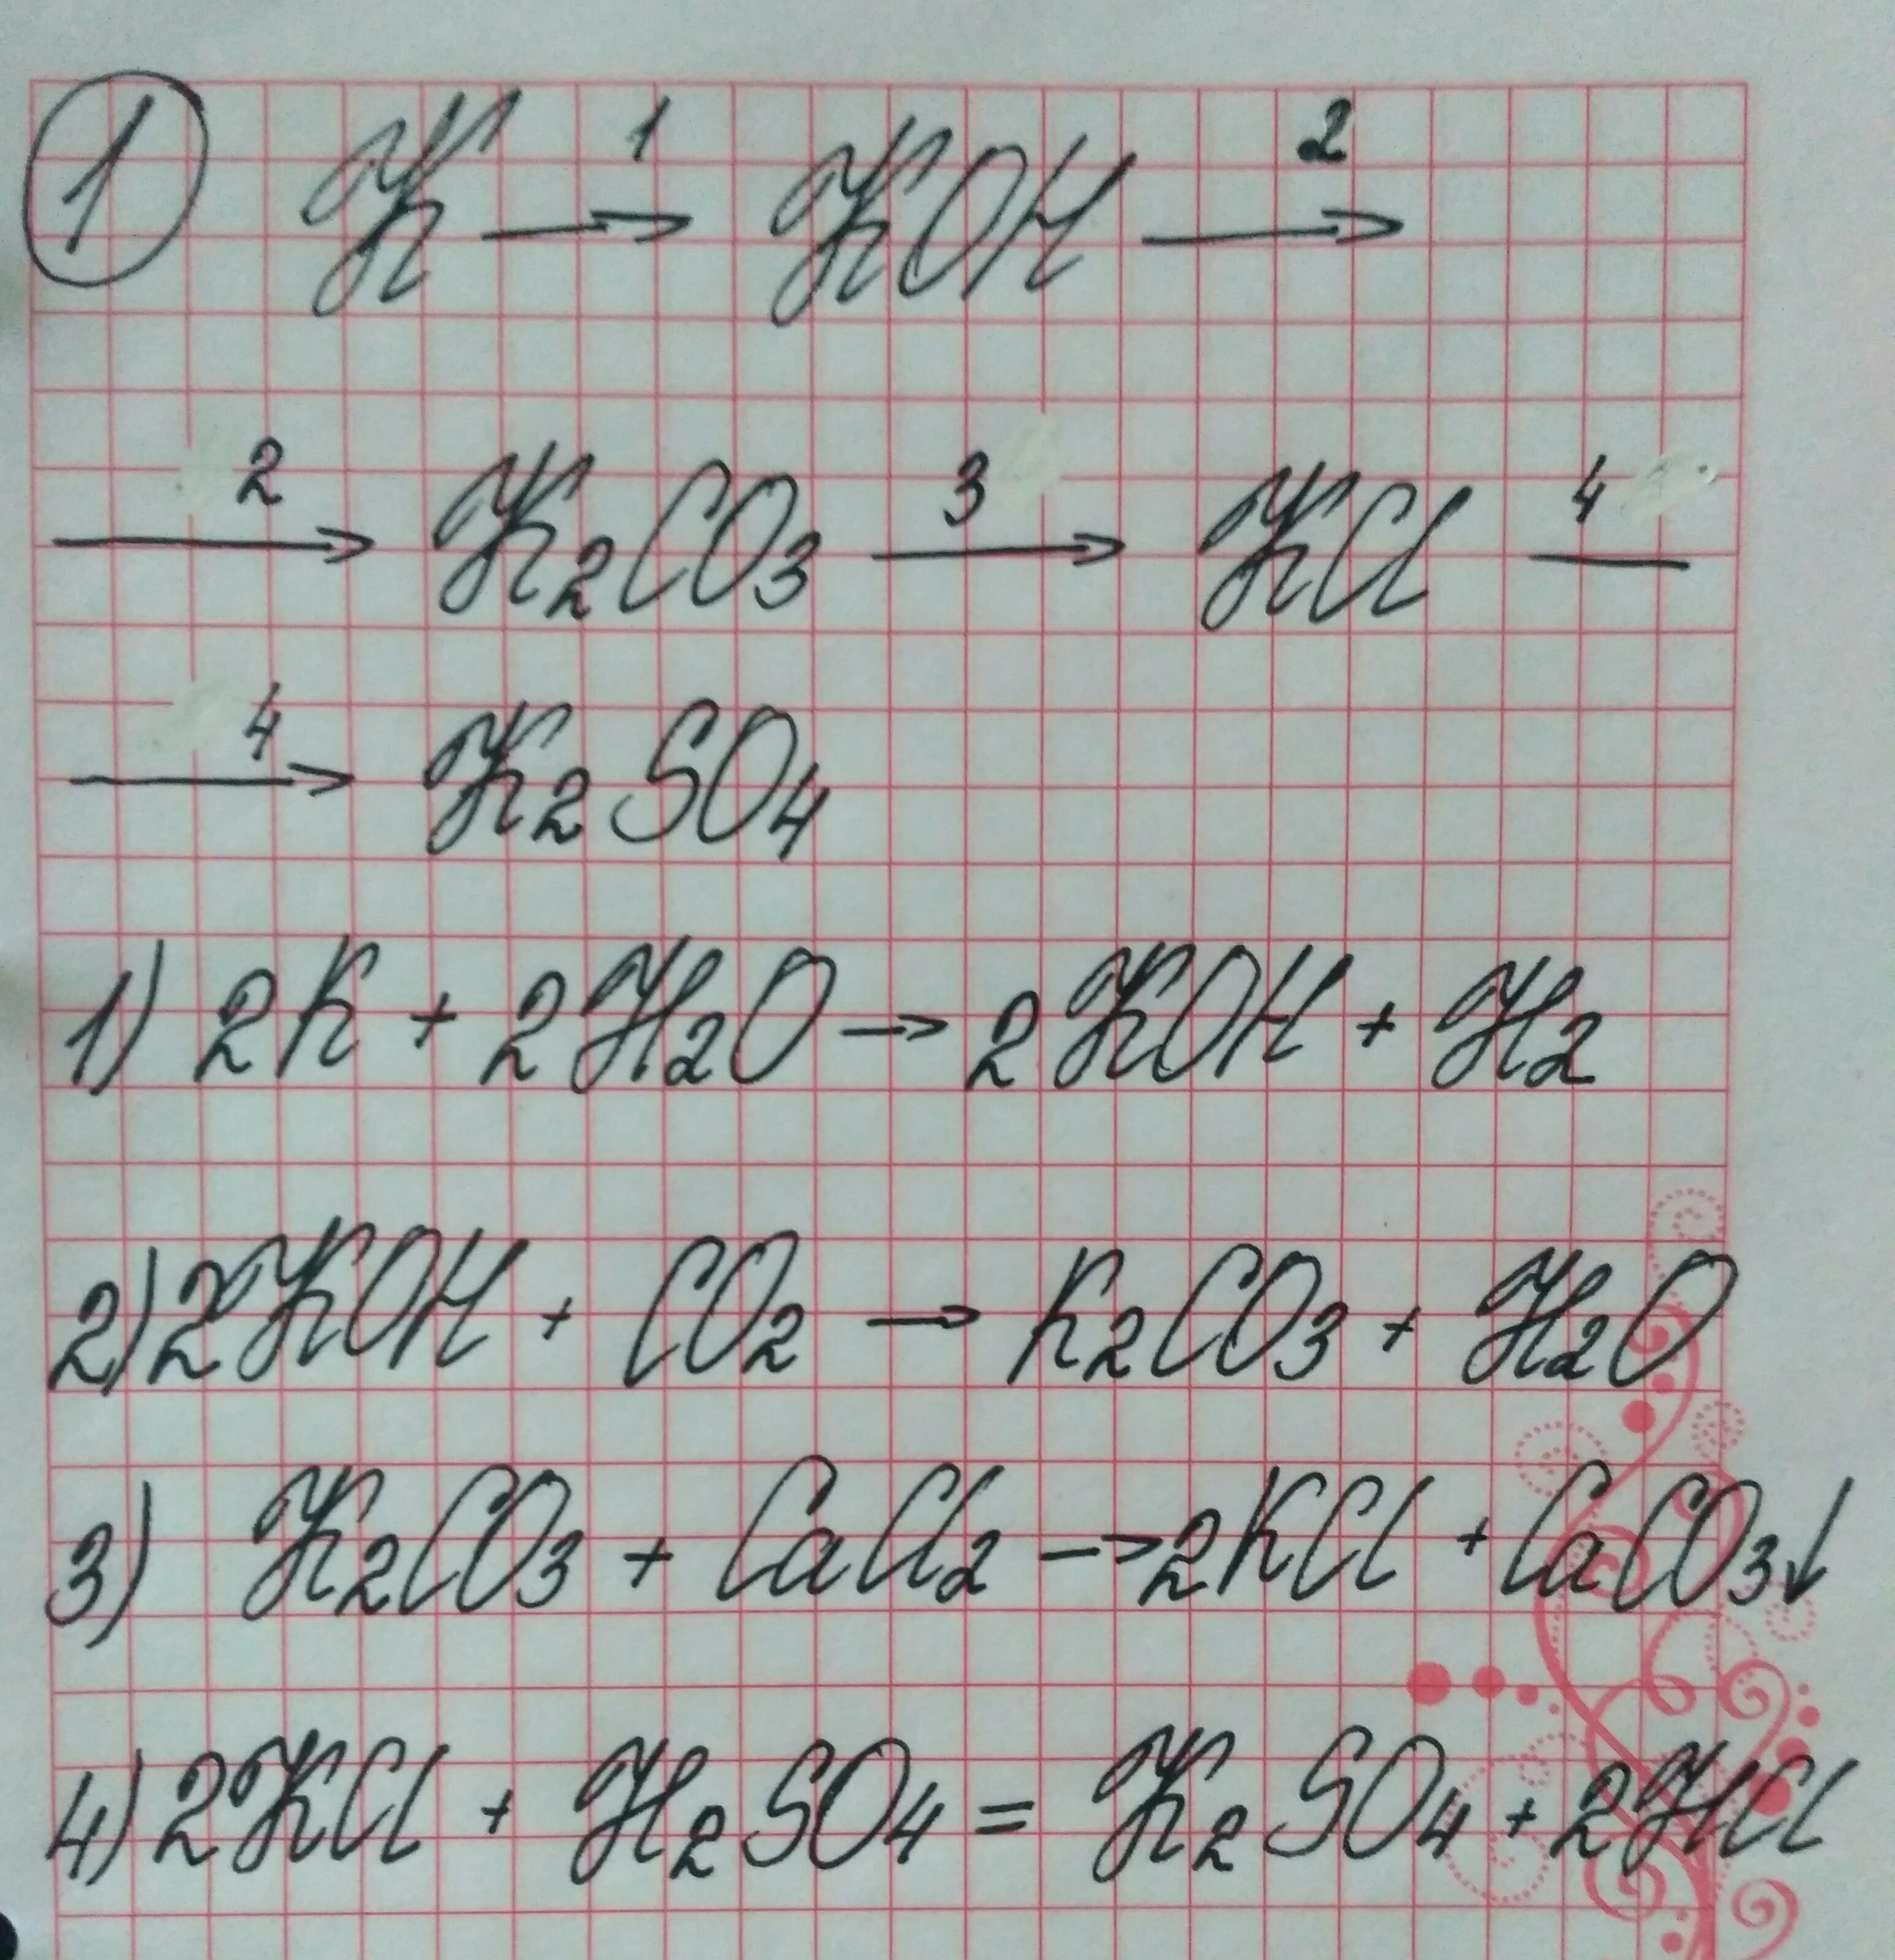 ① K 1→ KOH 2→
2→ K₂CO₃ 3→ KCl 4—
4→ K₂SO₄
1) 2K + 2H₂O → 2KOH + H₂
2) 2KOH + CO₂ → K₂CO₃ + H₂O
3) K₂CO₃ + CaCl₂ → 2KCl + CaCO₃↓
4) 2KCl + H₂SO₄ = K₂SO₄ + 2HCl